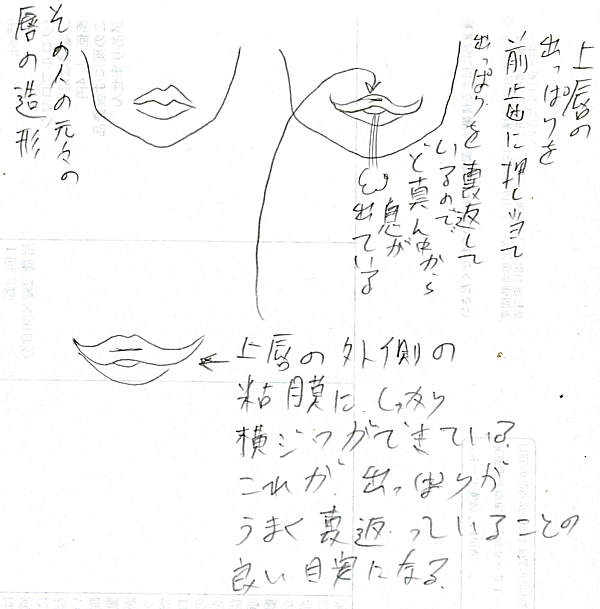 その人の元々の
唇の造形
上唇の
出っぱりを
前歯に押し当て
出っぱりを裏返して
いるので、
ど真ん中から
息が
出ている
上唇の外側の
粘膜に、しっかり
横ジワができている。
これが、出っぱりが
うまく裏返っていることの
良い目安になる。